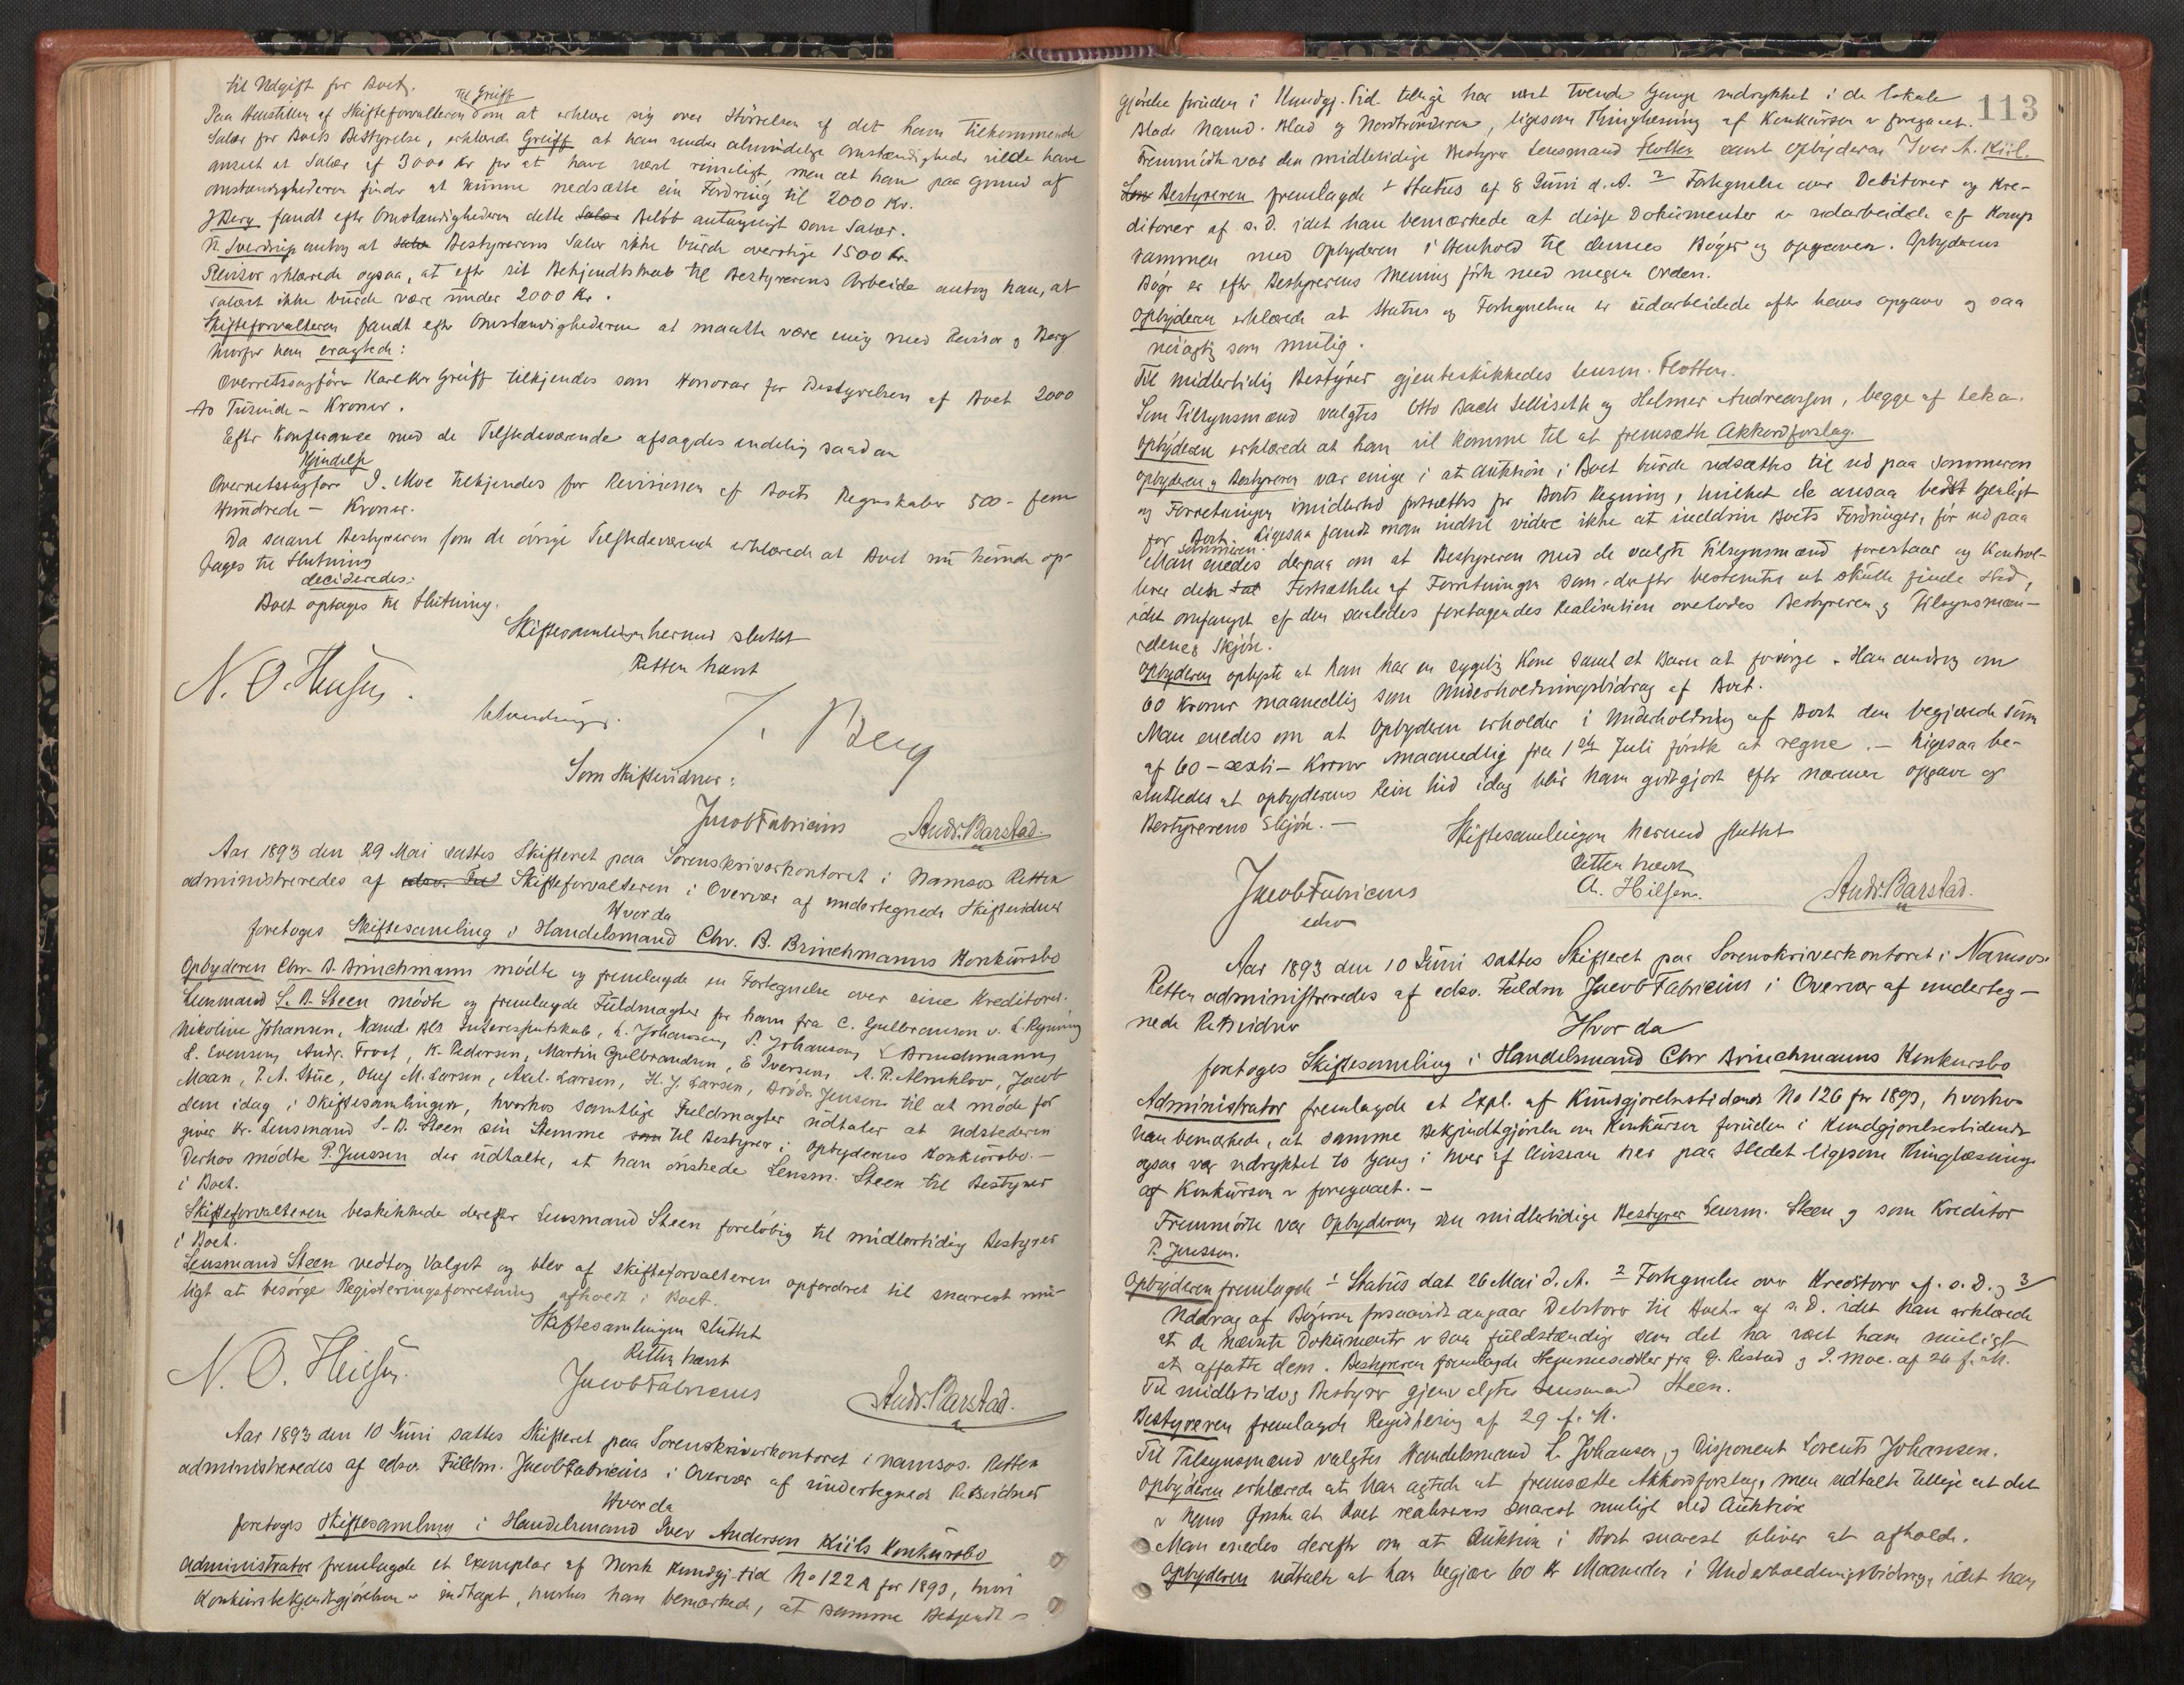 til Udgift for Boet.
Paa Henstillen af Skifteforvalteren Til Greiff om at erklære sig over Størrelsen af det ham tilkommende
Salær for Boets Bestyrelse, erklærede Greiff at han under almindelige Omstændigheder vilde have
anseet et Salær af 3000 Kr for at have været rimeligt, men at han paa Grund af
Omstændighederne finder at kunne nedsætte sin Fordring til 2000 Kr.
J Berg fandt efter Omstændighederne dette Salær Beløb antageligt som Salær.
N. Sverdrup antog at Salær Bestyrerens Salær ikke burde overstige 1500 Kr.
Revisor erklærede ogsaa, at efter sit Bekjendtskab til Bestyrerens Arbeide antog han, at
Salæret ikke burde være under 2000 Kr.
Skifteforvalteren fandt efter Omstændighederne at maatte være enig med Revisor og Berg
hvorfor han eragtede:
Overretssagfører Karl Kr Greiff tilkjendes som Honorar for Bestyrelsen af Boet 2000
to Tusinde - Kroner.
Efter Konferance med de Tilstedeværende afsagdes endelig saadan
Kjendelse
Overretssagfører J. Moe tilkjendes for Revisionen af Boets Regnskaber 500 - fem
Hundrede - Kroner.
Da saavel Bestyreren som de øvrige Tilstedeværende erklærede at Boet nu kunde op-
tages til Slutning
decideredes:
Boet optages til Slutning.
Skiftesamlingen hermed sluttet
Retten hævet
N. O. Hilsen.
J. Berg
Som Skiftevidner:
Jacob Fabricius Andr. Barstad.
Aar 1893 den 29 Mai sattes Skifteret paa Sorenskriverkontoret i Namsos Retten
administreredes af edsv. Ful Skifteforvalteren i Overvær af undertegnede Skiftevidner
Hvor da
foretoges Skiftesamling i Handelsmand Chr. B. Brinchmanns Konkursbo
Opbyderen Chr. B. Brinchmann mødte og fremlagde en Fortegnelse over sine Kreditorer.
Lensmand S. B. Steen mødte og fremlagde Fuldmagter for ham fra C. Gulbransen v. L. Ryning
Nikoline Johansen, Namd. Alm Interessentskab, L. Johansen, P. Johansen, L Brinchmann,
L. Evensen, Andr. Frost, K. Pedersen, Martin Gulbrandsen, E Iversen, A. P. Almklov, Jacob
Maan, P. A. Stue, Oluf M. Larsen, Axel Larsen, H. J. Larsen, Brødr. Jensen til at møde for
dem idag i Skiftesamlingen, hvorhos samtlige Fuldmagter udtaler at Udstederen
giver Hr. Lensmand S. B. Steen sin Stemme som til Bestyrer i Opbyderens Konkursbo. -
Derhos mødte P. Jenssen der udtalte, at han ønskede Lensm. Steen til Bestyrer
i Boet.
Skifteforvalteren beskikkede derefter Lensmand Steen foreløbig til midlertidig Bestyrer
i Boet.
Lensmand Steen vedtog Valget og blev af Skifteforvalteren opfordret til snarest mu-
ligt at besørge Registreringsforretning afholdt i Boet.
Skiftesamlingen sluttet
Retten hævet
N. O. Hilsen. Jacob Fabricius Andr. Barstad.
Aar 1893 den 10 Juni sattes Skifteret paa Sorenskriverkontoret i Namsos. Retten
administreredes af edsv. Fuldm. Jacob Fabricius i Overvær af undertegnede Retsvidner
Hvor da
foretoges Skiftesamling i Handelsmand Iver Andersen Kiils Konkursbo
Administrator fremlagde et Exemplar af Norsk Kundgj. tid No 122 A for 1893, hvori
Konkursbekjendtgjørelsen er indtaget, hvorhos han bemærkede, at samme Bekjendt-
113
gjørelse foruden i Kundgj. Tid. tillige har været tvende Gange indrykket i de lokale
Blade Namd. Blad og Nordtrønderen, ligesom Thinglæsning af Konkursen er foregaaet.
Fremmødt var den midlertidige Bestyrer Lensmand Flotten samt Opbyderen Iver A. Kiil.
Len Bestyreren fremlagde 1 Status af 8 Juni d. A. 2 Fortegnelse over Debitorer og Kre-
ditorer af s. D. idet han bemærkede at disse Dokumenter er udarbeidede af Komp
sammen med Opbyderen i Henhold til dennes Bøger og Opgaver. Opbyderens
Bøger er efter Bestyrerens Mening ført med megen Orden.
Opbyderen erklærede at Status og Fortegnelsen er udarbeidede efter hans Opgave og saa
nøiagtig som mulig.
Til midlertidig Bestyrer gjenbeskikkedes Lensm. Flotten.
Som Tilsynsmænd valgtes Otto Bach Sellisett og Helmer Andreassen, begge af Leka.
Opbyderen erklærede at han vil komme til at fremsætte Akkordforslag.
Opbyderen og Bestyreren var enige i at Auktion i Boet burde udsættes til ud paa Sommeren
og Forretningen imidlertid fortsættes for Boets Regning, hvilket de ansaa bedst tjenligt
for Boet. Ligesaa fandt man indtil videre ikke at inddrive Boets Fordringer, før ud paa
Sommeren.
Man enedes derpaa om at Bestyreren med de valgte Tilsynsmænd forestaar og kontrol-
lerer den Fortsættelse af Forretningen som derefter bestemtes at skulle finde Sted,
idet Omfanget af den saaledes foretagendes Realisation overlodes Bestyreren og Tilsynsmæn-
denes Skjøn.
Opbyderen oplyste at han har en sygelig Kone samt et Barn at forsørge. Han androg om
60 Kroner maanedlig som Underholdningsbidrag af Boet.
Man enedes om at Opbyderen erholder i Underholdning af Boet den begjærede Sum
af 60 - sexti - Kroner maanedlig fra 1ste Juli førstk at regne. - Ligesaa be-
sluttedes at Opbyderens Reise hid idag blir ham godtgjort efter nærmere Opgave og
Bestyrerens Skjøn. -
Skiftesamlingen hermed sluttet
Retten hævet
Jacob Fabricius A. Hilsen. Andr. Barstad.
edsv
Aar 1893 den 10 Juni sattes Skifteret paa Sorenskriverkontoret i Namsos.
Retten administreredes af edsv. Fuldm Jacob Fabricius i Overvær af underteg-
nede Retsvidner
Hvor da
foretoges Skiftesamling i Handelsmand Chr Brinchmanns Konkursbo
Administrator fremlagde et Expl. af Kundgjørelsestidende No 126 for 1893, hvorhos
han bemærkede, at samme Bekjendtgjørelse om Konkursen foruden i Kundgjørelsestidende
ogsaa var indrykket to Gang i hver af Aviserne her paa Stedet ligesom Thinglæsning
af Konkursen er foregaaet. -
Fremmødte var Opbyderen, den midlertidige Bestyrer Lensm. Steen og som Kreditor
P. Jenssen.
Opbyderen fremlagde 1 Status dat 26 Mai d. A. 2 Fortegnelse over Kreditorer af s. D. og 3
Uddrag af Bøgerne forsaavidt angaar Debitorer til Boet af s. D. idet han erklærede
at de nævnte Dokumenter er saa fuldstændige som det har været ham muligt
at affatte dem. Bestyreren fremlagde Hjemmesedler fra G. Ristad og J. Moe af 26 f. M.
Til midlertidig Bestyrer gjenvalgtes Lensmand Steen.
Bestyreren fremlagde Registrering af 29 f. M.
Til Tilsynsmænd valgtes Handelsmand L. Johansen, og Disponent Lorents Johansen.
Opbyderen erklærede at han agtede at fremsætte Akkordforslag, men udtalte tillige at det
er hans Ønske at Boet realiseres snarest muligt ved Auktion
Man enedes derefter om at Auktion i Boet snarest bliver at afholde.
Opbyderen udtalte at han begjærer 60 Kr Maaneden i Underholdningsbidrag, idet han